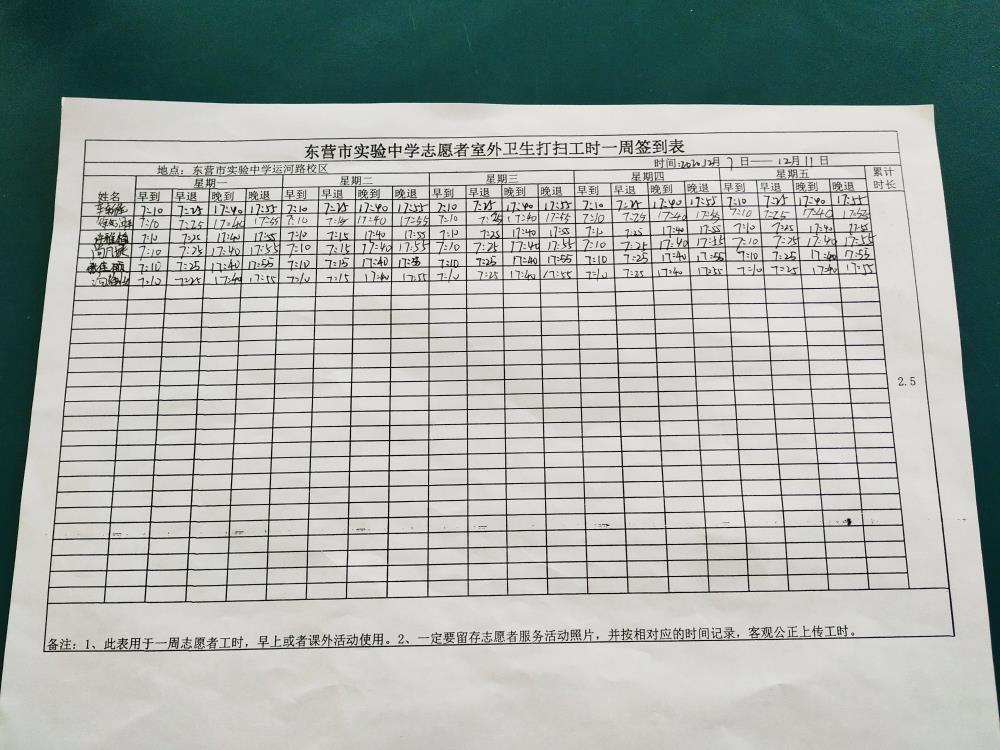 东营市实验中学志愿者室外卫生打扫工时一周签到表
地点：东营市实验中学运河路校区 时间:2020.12月7日——12月11日
姓名 星期一 星期二 星期三 星期四 星期五 累计时长
早到 早退 晚到 晚退 早到 早退 晚到 晚退 早到 早退 晚到 晚退 早到 早退 晚到 晚退 早到 早退 晚到 晚退
7:10 7:25 17:40 17:55 7:10 7:25 17:40 17:55 7:10 7:25 17:40 17:55 7:10 7:25 17:40 17:55 7:10 7:25 17:40 17:55
7:10 7:25 17:40 17:55 7:10 17:40 17:55 7:10 7:25 17:40 17:55 7:10 7:25 17:40 17:55 7:10 7:25 17:40 17:55
7:10 7:25 17:40 17:55 7:10 7:15 17:40 17:55 7:10 7:25 17:40 17:55 7:10 7:25 17:40 17:55 7:10 7:25 17:40 17:55
7:10 7:25 17:40 17:55 7:10 7:15 17:40 17:55 7:10 7:25 17:40 17:55 7:10 7:25 17:40 7:10 7:25 17:40 17:55
7:10 7:25 17:40 17:55 7:10 7:15 17:40 7:10 7:25 17:40 17:55 7:10 7:25 17:40 17:55 7:10 7:25 17:40 17:55
7:10 7:25 17:40 17:55 7:10 7:15 17:40 17:55 7:10 7:25 17:40 17:55 7:10 7:25 17:40 7:10 7:25 17:40
2.5
备注：1、此表用于一周志愿者工时，早上或者课外活动使用。2、一定要留存志愿者服务活动照片，并按相对应的时间记录，客观公正上传工时。